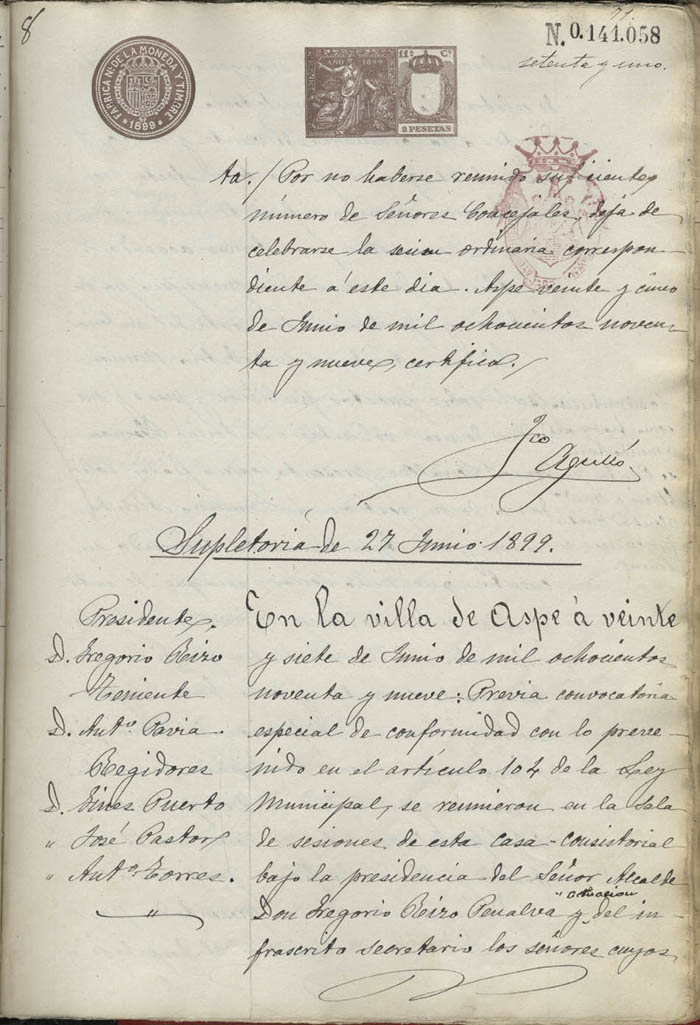 8
71
N. 0.141.058
setenta y uno.
FABRICA N. DE LA MONEDA Y TIMBRE
1899
AÑO 1899
11ª Cª
2 PESETAS
ta. / Por no haberse reunido suficiente
número de Señores Concejales, deja de
celebrarse la sesion ordinaria correspon-
diente á este dia. Aspe veinte y cinco
de Junio de mil ochocientos noven-
ta y nueve, certifico. /
Fco Agulló
Supletoria de 27 Junio 1899.
Presidente
D. Gregorio Rizo
Teniente
D. Antº Pavia
Regidores
D. Gines Puerto
" José Pastor
" Antº Torres.
"
En la villa de Aspe á veinte
y siete de Junio de mil ochocientos
noventa y nueve: Previa convocatoria
especial de conformidad con lo preve-
nido en el artículo 104 de la Ley
Municipal, se reunieron en la Sala
de sesiones de esta casa-consistorial
bajo la presidencia del Señor Alcalde
Don Gregorio Rizo Penalva y " actuacion del in-
frascrito secretario los señores cuyos